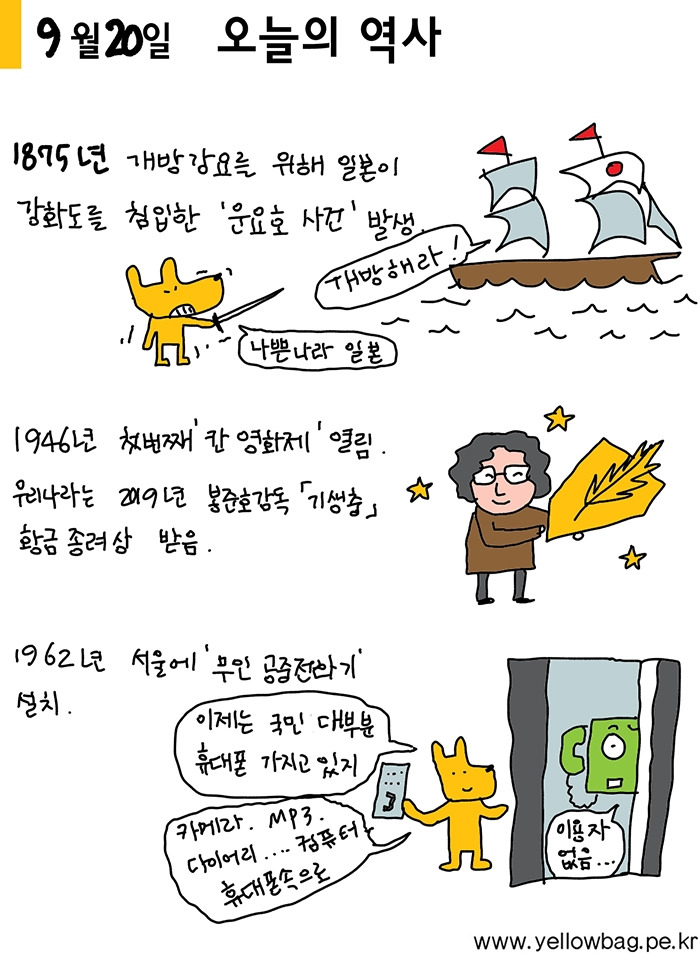 9월20일 오늘의 역사
1875년 개방강요를 위해 일본이
강화도를 침입한 '운요호 사건' 발생.
개방해라!
나쁜나라 일본
1946년 첫번째 '칸 영화제' 열림.
우리나라는 2019년 봉준호감독 「기생충」
황금종려상 받음.
1962년 서울에 '무인 공중전화기'
설치.
이제는 국민 대부분
휴대폰 가지고 있지
카메라. MP3.
다이어리.... 컴퓨터
휴대폰속으로
이용자
없음...
www.yellowbag.pe.kr